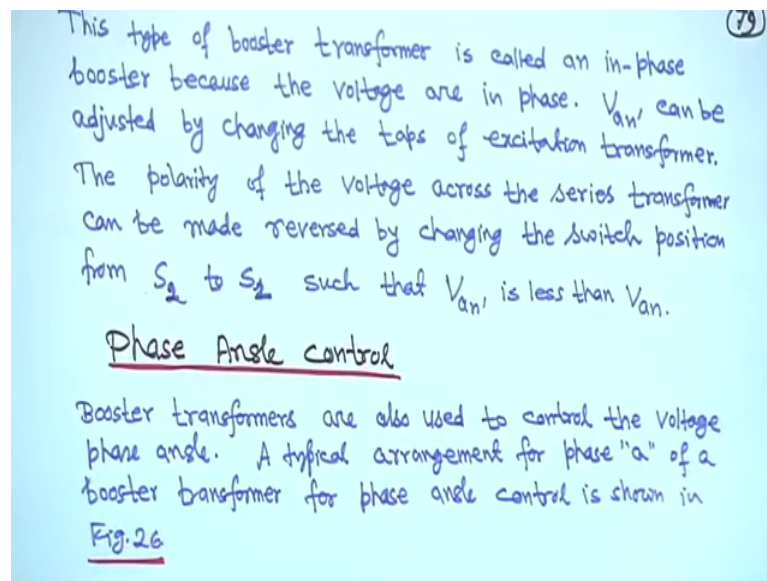 79
This type of booster transformer is called an in-phase
booster because the voltage are in phase. Van' can be
adjusted by changing the taps of excitation transformer.
The polarity of the voltage across the series transformer
can be made reversed by changing the switch position
from S2 to S1 such that Van' is less than Van.
Phase Angle control
Booster transformers are also used to control the voltage
phase angle. A typical arrangement for phase "a" of a
booster transformer for phase angle control is shown in
Fig.26